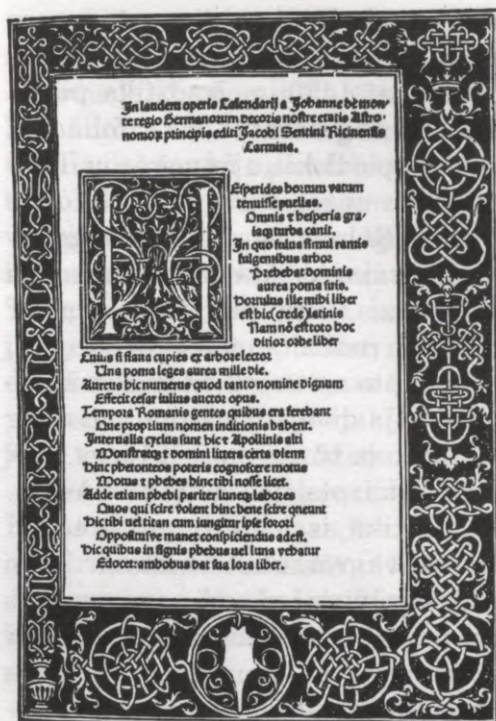 In laudem operis Calendarij a Johanne de mon-
te regio Germanorum decoris nostre etatis Astro-
nomoꝝ principis editi Jacobi Sentini Ricinensis
Carmina.
HEsperides hortum vatum
tenuisse puellas.
Omnis ⁊ hesperia gra-
iaqꝫ turba canit.
In quo fulua simul ramis
fulgentibus arbor
Prebebat dominis
aurea poma suis.
Hortulus ille mihi liber
est hic (crede) latinis
Nam nō est toto hoc
ditior orbe liber
Cuius si flaua cupies ex arbore lector
Una poma leges aurea mille die.
Aureus hic numerus quod tanto nomine dignum
Effecit cesar iulius auctor opus.
Tempora Romanis gentes quibus era ferebant
Que proprium nomen inditionis habent.
Interualla cyclus sunt hic ⁊ Apollinis alti
Monstratqꝫ ⁊ domini littera certa diem
Hinc phetonteos poteris cognoscere motus
Motus ⁊ phebes hinc tibi nosse licet.
Adde etiam phebi pariter luneqꝫ labores
Quos qui scire volent hinc bene scire queunt
Hic tibi uel titan cum iungitur ipse sorori
Oppositusve manet conspiciendus adest.
Hic quibus in signis phebus uel luna vehatur
Edocet: ambobus dat sua loca liber.